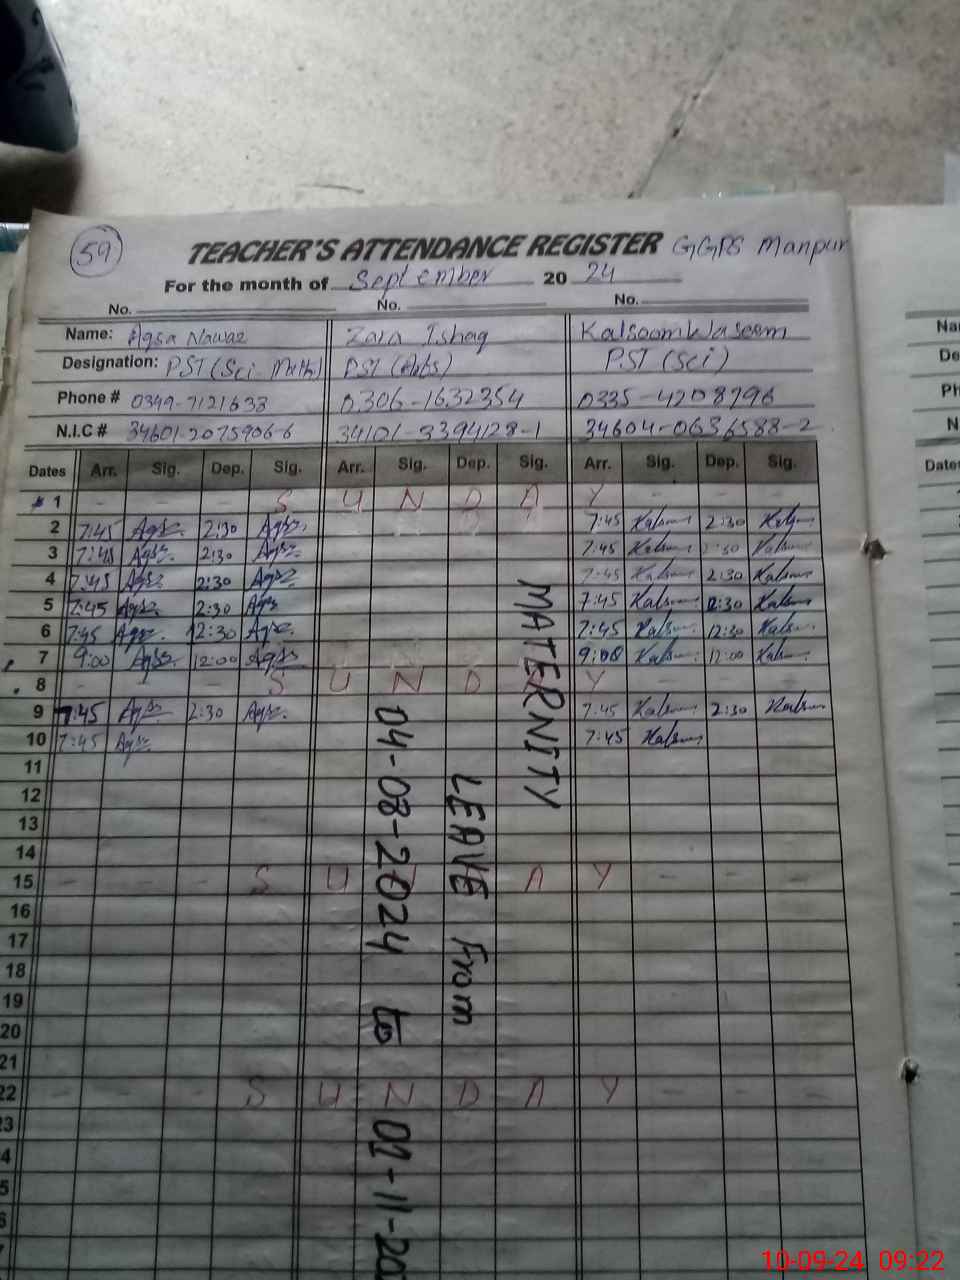 59
TEACHER'S ATTENDANCE REGISTER GGPS Manpur
For the month of September 20 24
No. No. No.
Name: Aqsa Nawaz Zara Ishaq Kalsoom Waseem
Designation: PST (Sci Math) PST (Arts) PST (Sci)
Phone # 0349-7121633 0306-1632354 0335-4208796
N.I.C # 34601-2075906-6 34101-3394128-1 34604-0636588-2
Dates Arr. Sig. Dep. Sig. Arr. Sig. Dep. Sig. Arr. Sig. Dep. Sig.
1 - - - S U N D A Y - - -
2 7:45 Aqsa 2:30 Aqsa 7:45 Kalsoom 2:30 Kalsoom
3 7:45 Aqsa 2:30 Aqsa 7:45 Kalsoom 2:30 Kalsoom
4 7:45 Aqsa 2:30 Aqsa 7:45 Kalsoom 2:30 Kalsoom
5 7:45 Aqsa 2:30 Aqsa 7:45 Kalsoom 2:30 Kalsoom
6 7:45 Aqsa 12:30 Aqsa 7:45 Kalsoom 12:30 Kalsoom
7 9:00 Aqsa 12:00 Aqsa 9:00 Kalsoom 12:00 Kalsoom
8 - - - S U N D A Y - - -
9 7:45 Aqsa 2:30 Aqsa 7:45 Kalsoom 2:30 Kalsoom
10 7:45 Aqsa 7:45 Kalsoom
11
12
13
14
15 - - - S U N D A Y - - -
16
17
18
19
20
21
22 - - - S U N D A Y - - -
23
MATERNITY
LEAVE From
04-08-2024 to
10-09-24 09:22